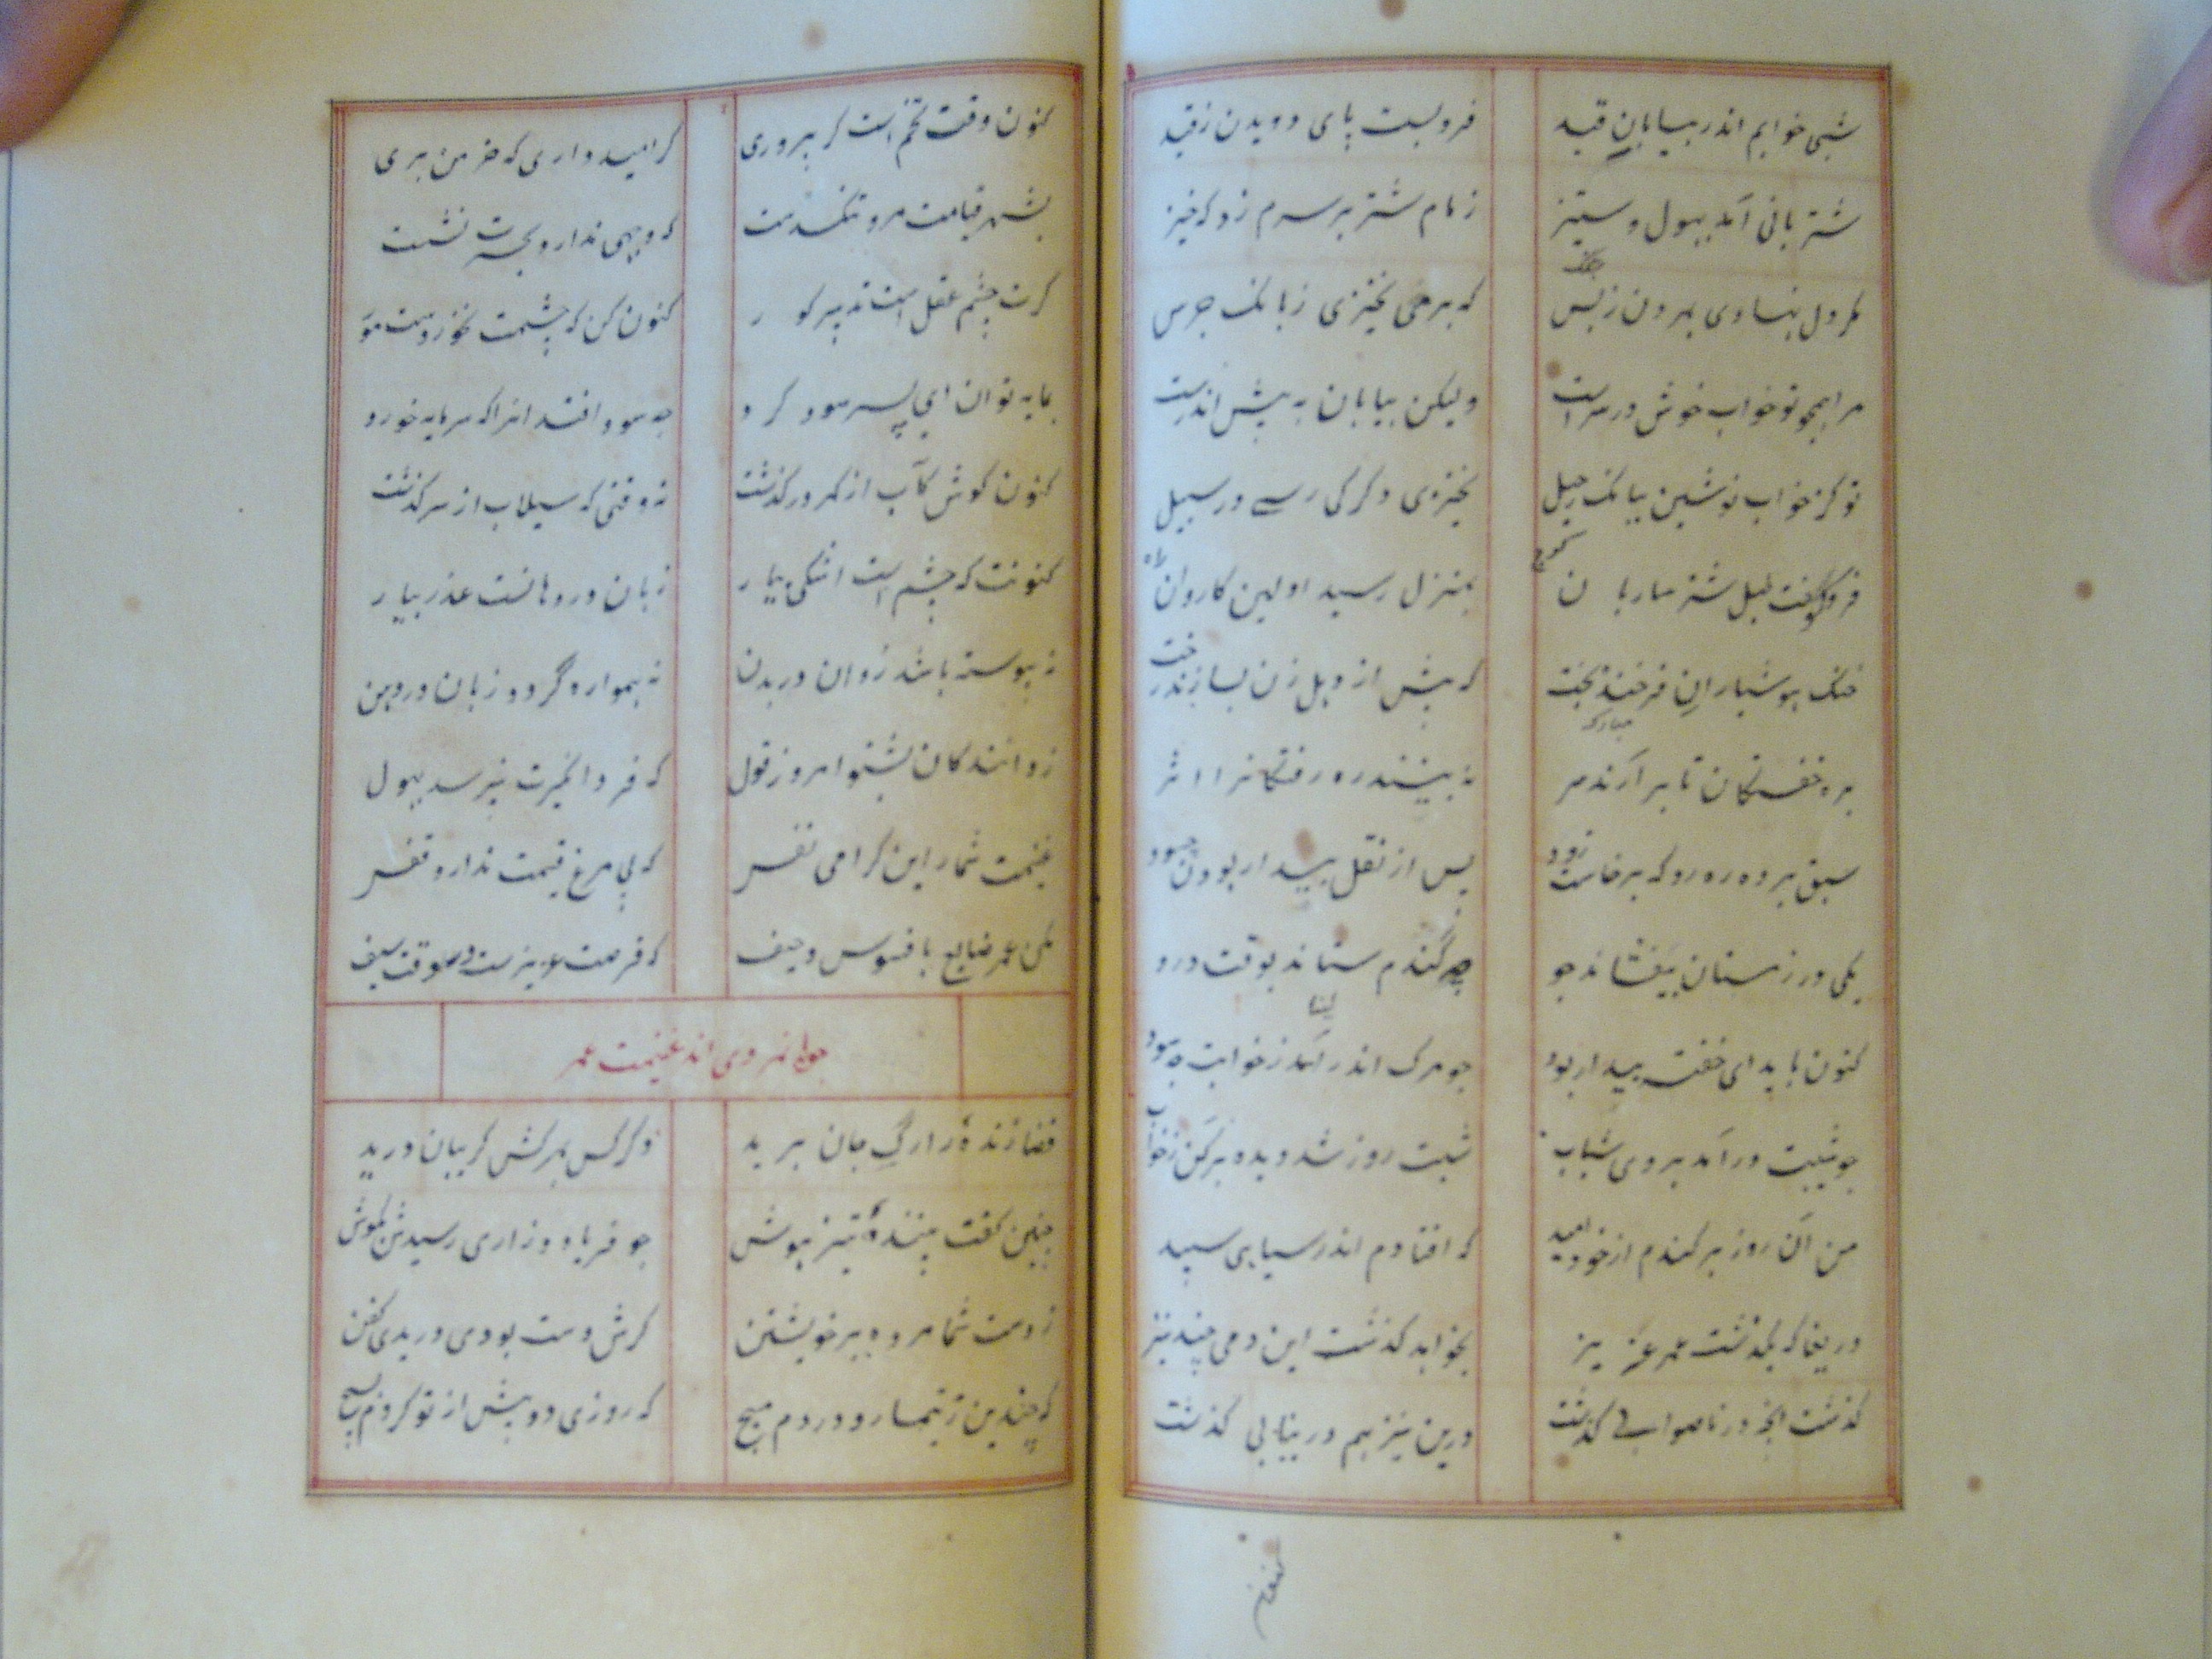 شبی خوابم اندر بیابان قید فروبست پای دویدن ز قید
شتربانی آمد بهول و ستیز زمام شتر بر سرم زد که خیز
جنگ
مگر دل نهادی بمردن ز پس که بر می نخیزی زبانک جرس
مرا همچو تو خواب خوش در سر است ولیکن بیابان به پیش اندرست
تو کز خواب نوشین ببانک رحیل نخیزی دگر کی رسی در سبیل
کوچ راه
فروکوفت طبل شتر ساربان بمنزل رسید اولین کاروان
خنک هوشیاران فرخنده بخت که پیش از دهل زن بسازند رخت
مبارک
بره خفتگان تا برآرند سر نه بینند ره رفتگانرا اثر
سبق برد ره رو که برخاست زود پس از نقل بیدار بودن چسود
یکی در زمستان بیفشاند جو چه گندم ستاند بوقت درو
کنون باید ای خفته بیدار بود چو مرک اندر آمد ز خوابت چه سود
چو شیبت درآمد بروی شباب شبت روز شد دیده برکن ز خواب
من آن روز برکندم از خود امید که افتادم اندر سیاهی سپید
دریغا که بگذشت عمر عزیز بخواهد گذشت این دمی چند نیز
گذشت آنچه در ناصوابی گذشت ورین نیز هم درنیابی گذشت
کنون
کنون وقت تخم است کر پروری کر امیدواری که خرمن بری
بشهر قیامت مرو تنکدست که وجهی ندارد بحسرت نشست
کرت چشم عقل است تدبیر کور کنون کن که چشمت نخوردست مور
بمایه توان ای پسر سود کرد چه سود افتد انرا که سرمایه خورد
کنون کوش کآب از کمر درگذشت نه وقتی که سیلاب از سر گذشت
کنونت که چشم است اشکی ببار زبان در دهانست عذر بیار
نه پیوسته باشد روان در بدن نه همواره گردد زبان در دهن
ز دانندگان بشنو امروز قول که فردا نکیرت بپرسد بهول
غنیمت شمار این گرامی نفس که بی مرغ قیمت ندارد قفس
مکن عمر ضایع بافسوس و حیف که فرصت عزیزست و الوقت سیف
جوانمردی اندر غنیمت عمر
قضا زنده را رگ جان برید دگر کس بمرکش گریبان درید
چنین گفت بیننده تیز هوش چو فریاد و زاری رسیدش بگوش
ز دست شما مرده بر خویشتن گرش دست بودی دریدی کفن
که چندین ز تیمار و دردم مپیچ که روزی دو پیش از تو کردم بسیج